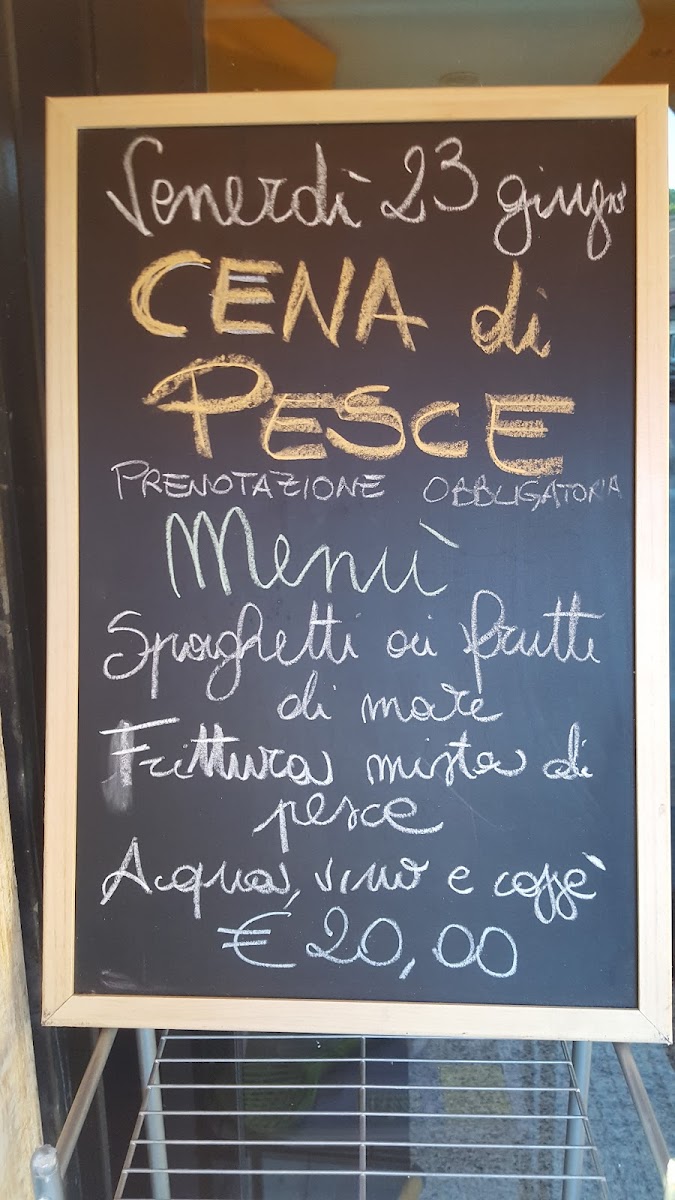 Venerdì 23 giugno
CENA di
PESCE
PRENOTAZIONE OBBLIGATORIA
Menù
Spaghetti ai frutti
di mare
Frittura mista di
pesce
Acqua, vino e caffè
€ 20,00